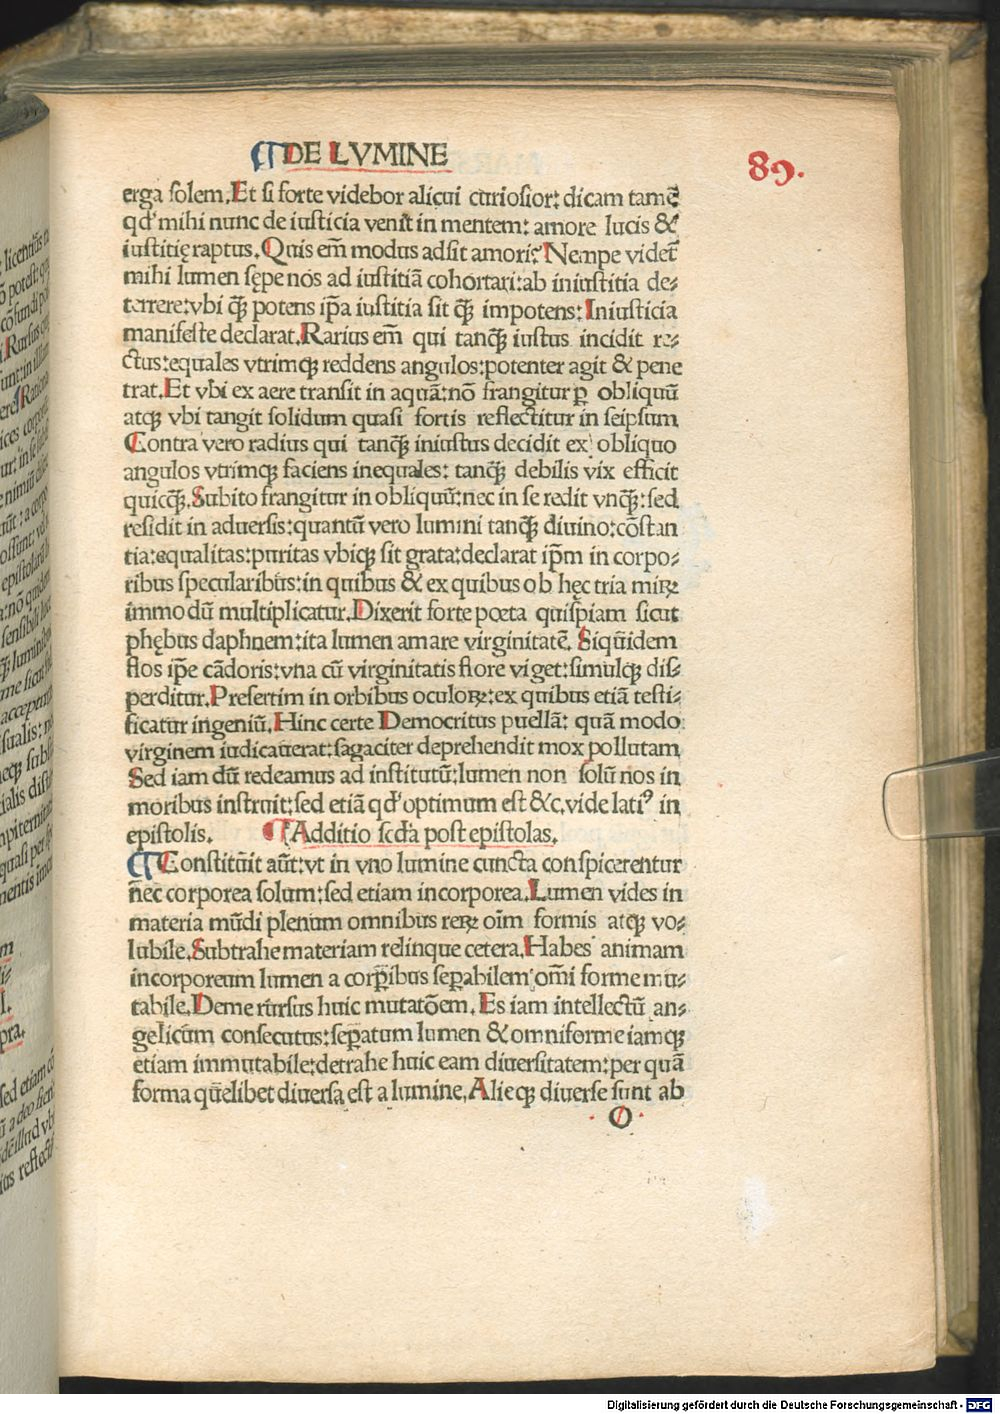 ¶ DE LVMINE
89.
erga solem. Et si forte videbor alicui curiosior: dicam tamē
qd' mihi nunc de iusticia venit in mentem: amore lucis &
iustitię raptus. Quis em̄ modus adsit amori? Nempe videt̄
mihi lumen sępe nos ad iustitiā cohortari: ab iniustitia de-
terrere: vbi q̄ꝫ potens ip̄a iustitia sit q̄ꝫ impotens: Iniusticia
manifeste declarat. Rarius em̄ qui tanq̄ꝫ iustus incidit re-
ctus: equales vtrimqꝫ reddens angulos: potenter agit & pene
trat. Et vbi ex aere transit in aquā: nō frangitur ꝑ obliquū
atqꝫ vbi tangit solidum quasi fortis reflectitur in seipsum
Contra vero radius qui tanq̄ꝫ iniustus decidit ex obliquo
angulos vtrimqꝫ faciens inequales: tanq̄ꝫ debilis vix efficit
quicq̄ꝫ. Subito frangitur in obliquū: nec in se redit vnq̄ꝫ: sed
residit in aduersis: quantū vero lumini tanq̄ꝫ diuino: cōstan
tia: equalitas: puritas vbiqꝫ sit grata: declarat ip̄m in corpo-
ribus specularibus: in quibus & ex quibus ob hęc tria mirꝫ
immo dū multiplicatur. Dixerit forte poeta quispiam sicut
phębus daphnem: ita lumen amare virginitatē. Siquidem
flos ip̄e cādoris: vna cū virginitatis flore viget: simulqꝫ dis-
perditur. Presertim in orbibus oculoꝝ: ex quibus etiā testi-
ficatur ingeniū. Hinc certe Democritus puellā: quā modo
virginem iudicauerat: sagaciter deprehendit mox pollutam
Sed iam dū redeamus ad institutū: lumen non solū nos in
moribus instruit: sed etiā qd' optimum est &c, vide lati⁹ in
epistolis. ¶ Additio scd̄a post epistolas.
¶ Constituit aūt: vt in vno lumine cuncta conspicerentur
nec corporea solum: sed etiam incorporea. Lumen vides in
materia mūdi plenum omnibus reꝝ oīm formis atqꝫ vo-
lubile. Subtrahe materiam relinque cetera. Habes animam
incorporeum lumen a corꝑibus seꝑabilem omī forme mu-
tabile. Deme rursus huic mutatōem. Es iam intellectū an-
gelicum consecutus: seꝑatum lumen & omniforme iamqꝫ
etiam immutabile: detrahe huic eam diuersitatem: per quā
forma quēlibet diuersa est a lumine. Alieqꝫ diuerse sunt ab
O
Digitalisierung gefördert durch die Deutsche Forschungsgemeinschaft - DFG